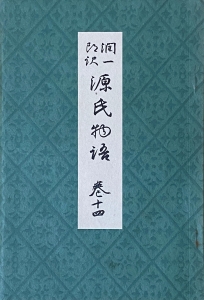 潤一
郎訳
源氏物語
巻十四